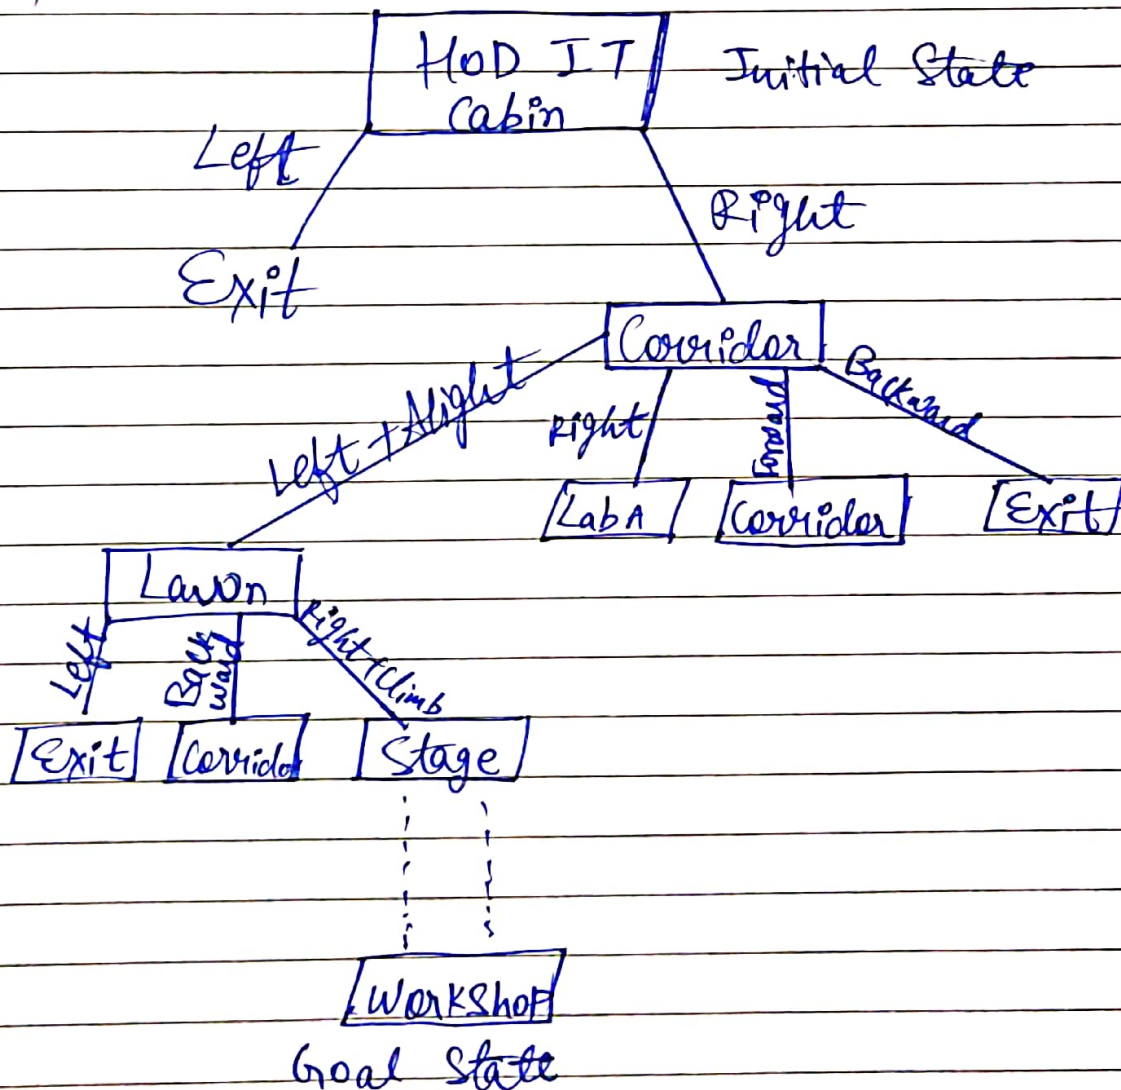 HOD IT
Cabin
Initial State
Left
Right
Exit
Corridor
Left + Alight
Right
Forward
Backward
Lab A
Corridor
Exit
Lawn
Left
Back
ward
Right + Climb
Exit
Corridor
Stage
Workshop
Goal State